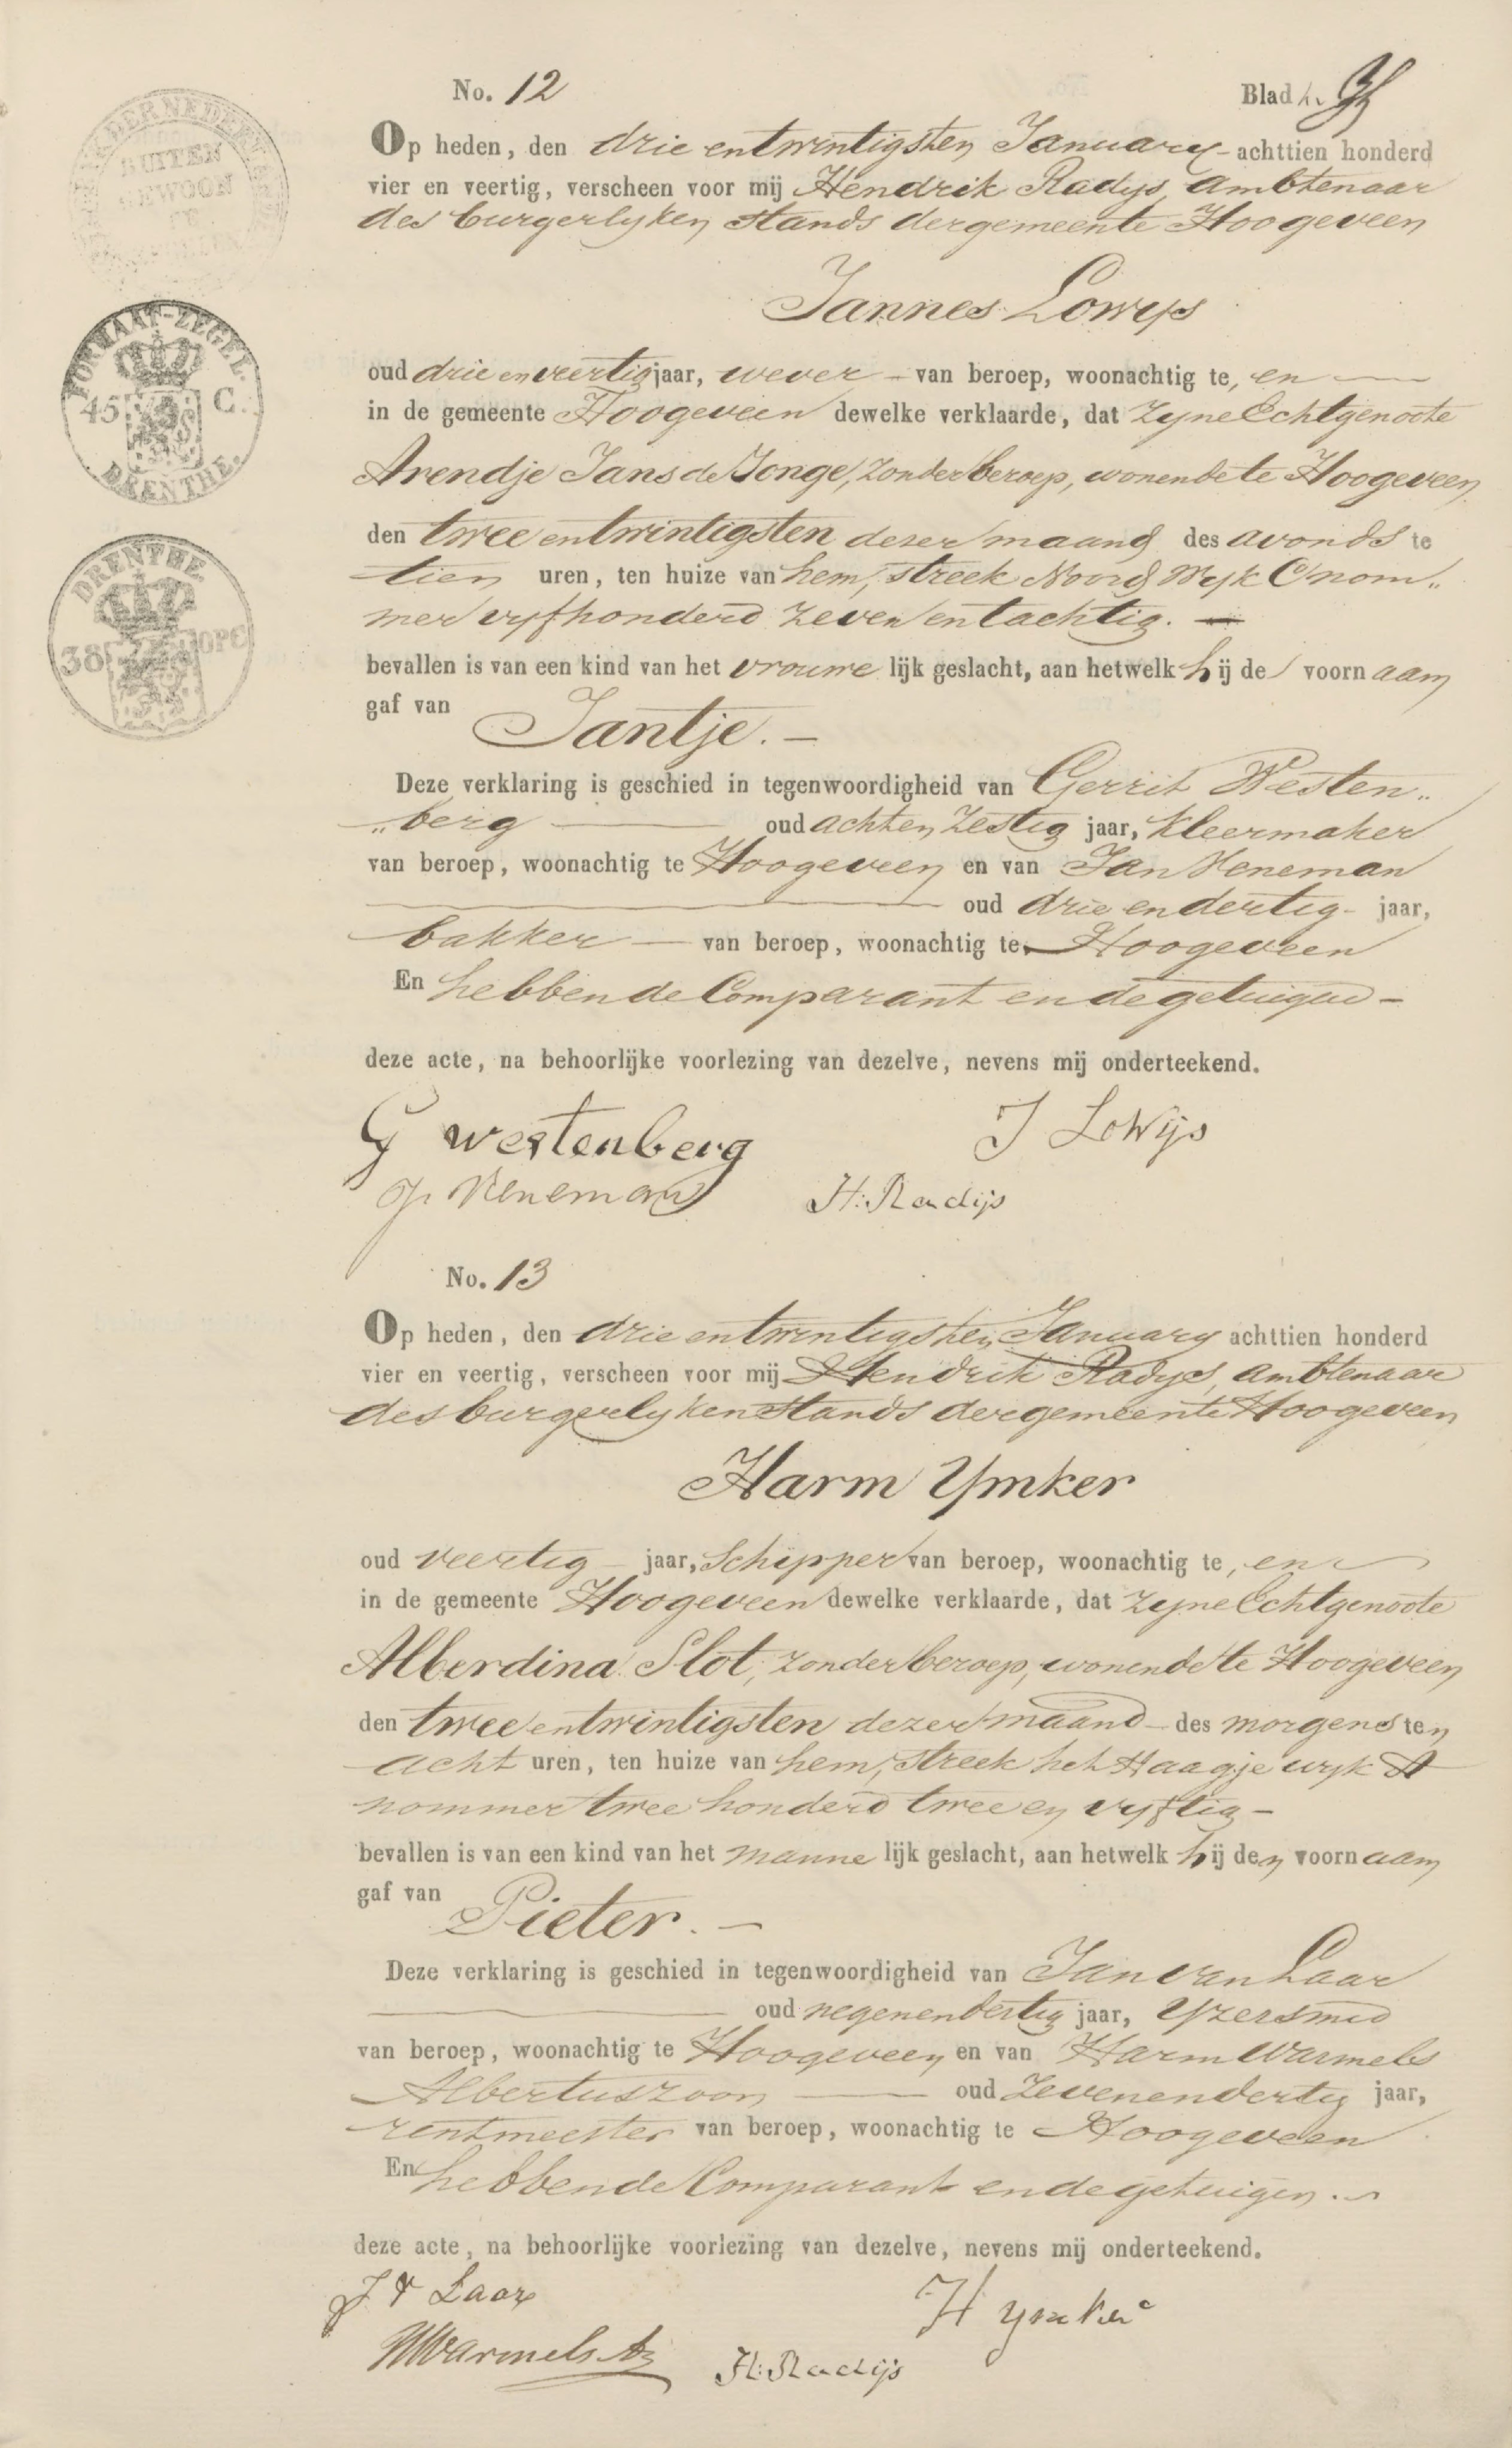 No. 12
Blad
Op heden, den drie en twintigsten January achttien honderd
vier en veertig, verscheen voor mij Hendrik Radys, Ambtenaar
des burgerlyken stands der gemeente Hoogeveen
Jannes Lowys
oud drie en veertig jaar, wever van beroep, woonachtig te, en
in de gemeente Hoogeveen dewelke verklaarde, dat zyne Echtgenoote
Arendje Jans de Jonge, zonder beroep, wonende te Hoogeveen
den twee en twintigsten dezer maand des avonds te
tien uren, ten huize van hem, streek Noord Wyk C nom„
mer vyfhonderd zeven en tachtig. —
bevallen is van een kind van het vrouwe lijk geslacht, aan hetwelk hij de voornaam
gaf van Jantje. —
Deze verklaring is geschied in tegenwoordigheid van Gerrit Westen„
„berg oud acht en zestig jaar, kleermaker
van beroep, woonachtig te Hoogeveen en van Jan Veneman
oud drie en dertig jaar,
bakker van beroep, woonachtig te Hoogeveen
En hebben de Comparant en de getuigen —
deze acte, na behoorlijke voorlezing van dezelve, nevens mij onderteekend.
G westenberg J Lowijs
Veneman H: Radijs
No. 13
Op heden, den drie en twintigsten January achttien honderd
vier en veertig, verscheen voor mij Hendrik Radys, Ambtenaar
des burgerlyken stands der gemeente Hoogeveen
Harm Ymker
oud veertig jaar, Schipper van beroep, woonachtig te, en
in de gemeente Hoogeveen dewelke verklaarde, dat zyne Echtgenoote
Alberdina Slot, zonder beroep, wonende te Hoogeveen
den twee en twintigsten dezer maand des morgens ten
acht uren, ten huize van hem, streek het Haagje wyk A
nommer twee honderd twee en vyftig —
bevallen is van een kind van het manne lijk geslacht, aan hetwelk hij den voornaam
gaf van Pieter. —
Deze verklaring is geschied in tegenwoordigheid van Jan van Laar
oud negen en dertig jaar, Yzersmid
van beroep, woonachtig te Hoogeveen en van Harm Warmels
Albertuszoon oud zeven en dertig jaar,
rentmeester van beroep, woonachtig te Hoogeveen
En hebben de Comparant en de getuigen.
deze acte, na behoorlijke voorlezing van dezelve, nevens mij onderteekend.
J v Laar H ymker
HWarmels Az H: Radijs
BUITEN
GEWOON
FORMAAT-ZEGEL.
45 C.
DRENTHE.
DRENTHE.
38 OPC